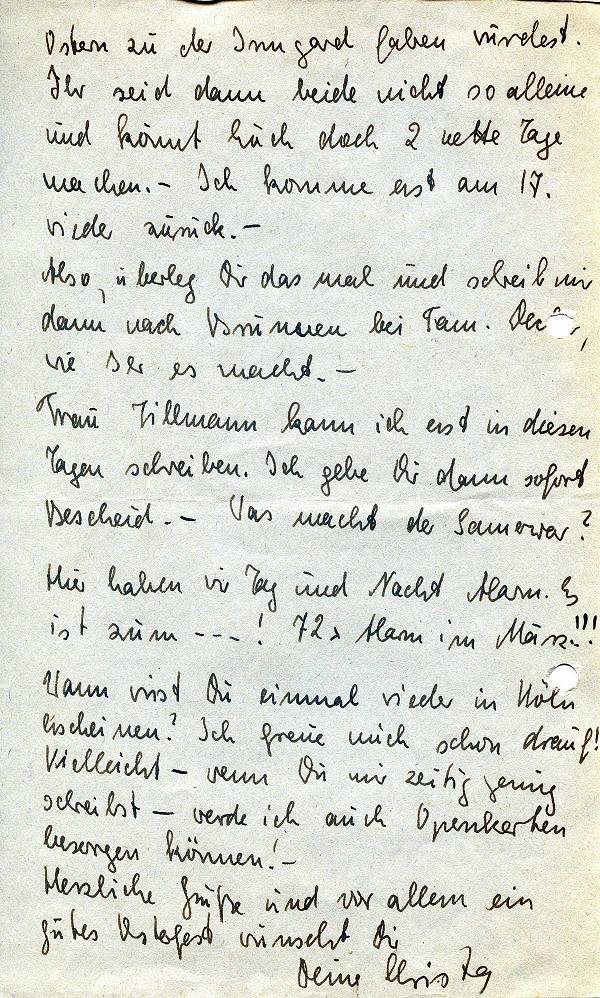 Ostern zu der Irmgard fahren würdest.
Ihr seid dann beide nicht so alleine
und könnt Euch doch 2 nette Tage
machen.– Ich komme erst am 17.
wieder zurück.–
Also, überleg Dir das mal und schreib mir
dann nach Brunnen bei Fam.
wie Ihr es macht.–
Frau Tillmann kann ich erst in diesen
Tagen schreiben. Ich gebe Dir dann sofort
Bescheid.– Was macht der Samowar?
Hier haben wir Tag und Nacht Alarm. Es
ist zum ---! 72x Alarm im März!!!
Wann wirst Du einmal wieder in Köln
erscheinen? Ich freue mich schon drauf!
Vielleicht – wenn Du mir zeitig genug
schreibst – werde ich auch Opernkarten
besorgen können!–
Herzliche Grüße und vor allem ein
gutes Osterfest wünscht Dir
Deine Christa